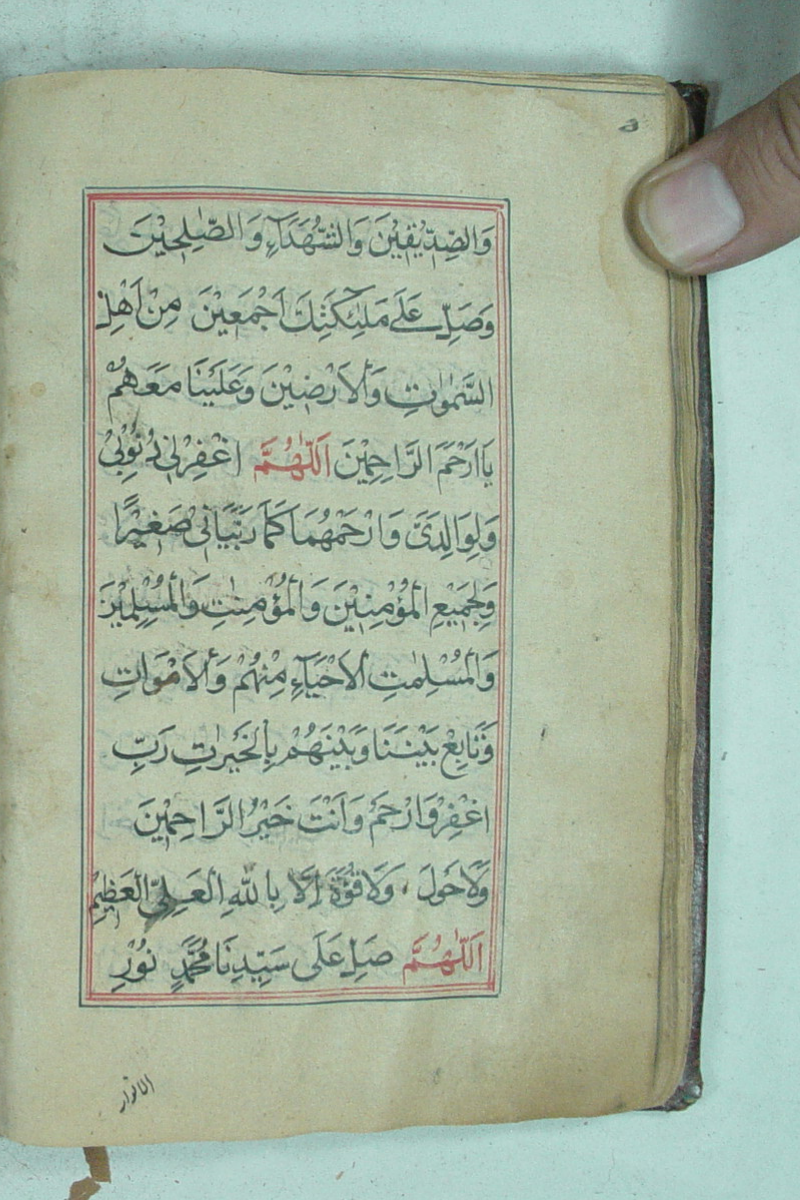 وَالصِّدِّيْقِيْنَ وَالشُّهَدَآءِ وَالصّٰلِحِيْنَ
وَصَلِّ عَلٰى مَلٰٓئِكَتِكَ اَجْمَعِيْنَ مِنْ اَهْلِ
السَّمٰوٰتِ وَالْاَرْضِيْنَ وَعَلَيْنَا مَعَهُمْ
يَا اَرْحَمَ الرَّاحِمِيْنَ اَللّٰهُمَّ اغْفِرْلِيْ ذُنُوْبِيْ
وَلِوَالِدَيَّ وَارْحَمْهُمَا كَمَا رَبَّيَانِيْ صَغِيْرًا
وَلِجَمِيْعِ الْمُؤْمِنِيْنَ وَالْمُؤْمِنٰتِ وَالْمُسْلِمِيْنَ
وَالْمُسْلِمٰتِ الْاَحْيَآءِ مِنْهُمْ وَالْاَمْوَاتِ
وَتَابِعْ بَيْنَنَا وَبَيْنَهُمْ بِالْخَيْرٰتِ رَبِّ
اغْفِرْ وَارْحَمْ وَاَنْتَ خَيْرُ الرَّاحِمِيْنَ
وَلَا حَوْلَ وَلَا قُوَّةَ اِلَّا بِاللّٰهِ الْعَلِيِّ الْعَظِيْمِ
اَللّٰهُمَّ صَلِّ عَلٰى سَيِّدِنَا مُحَمَّدٍ نُوْرِ
الانوار